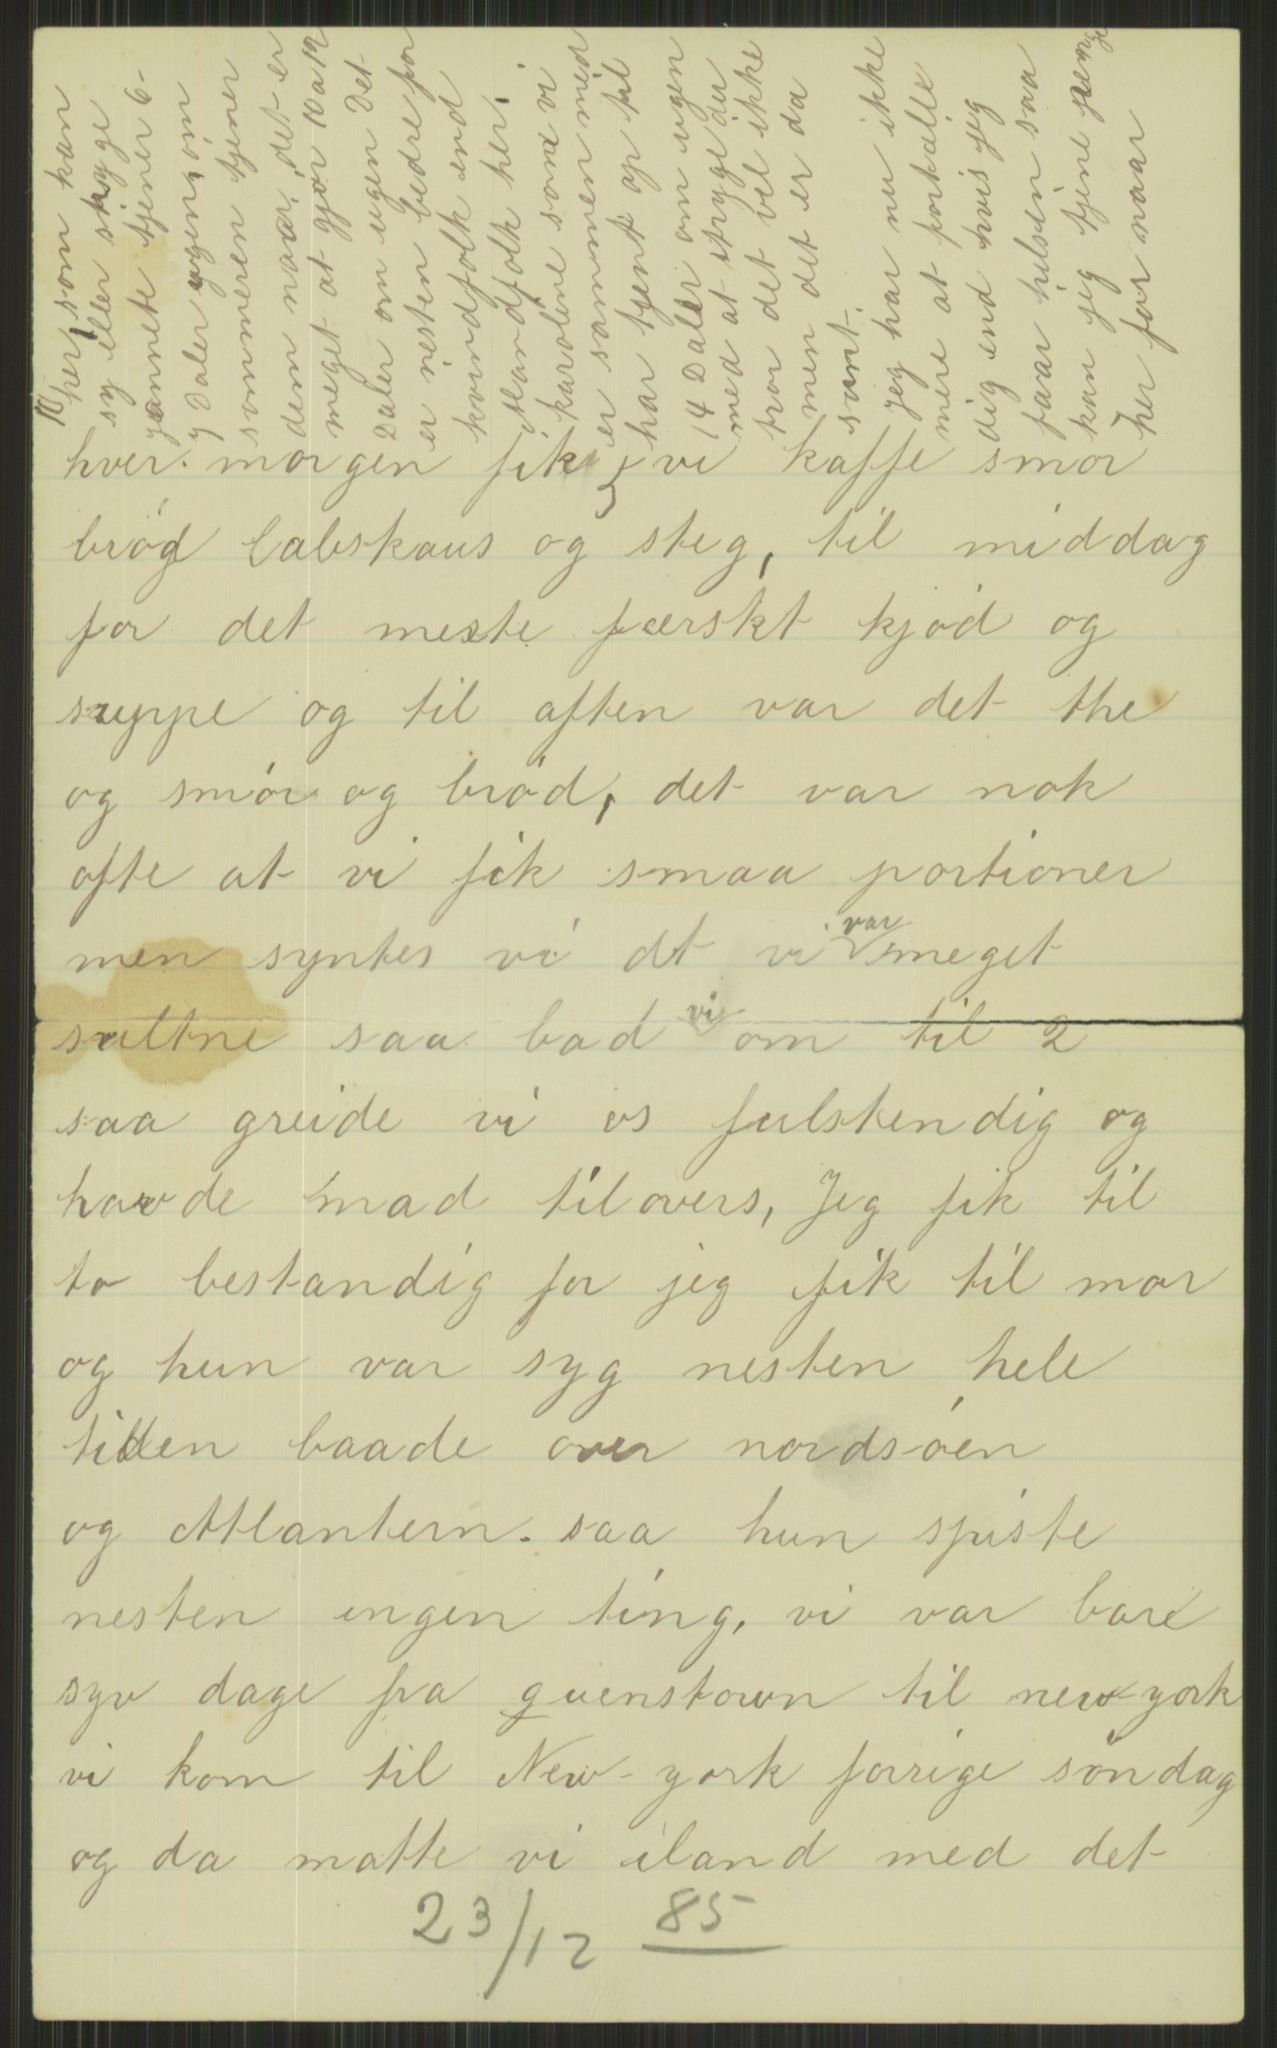 10
her, som kan
sy eller stryge
jannete tjener 6-
7 Daler ugen, om
sommeren tjener
dem naar, det er
meget at gjør 10 a 12
Daler om ugen Det
er nesten bedre for
kvindfolk end
Mandfolk her,
karoline som vi
er sammen med
har tjent op til
14 Daler om ugen
med at stryge du
tror det vel ikke
men det er da
sant.
Jeg har nu ikke
mere at fortælle
dig end hvis jeg
faar hilsen saa
kan jeg tjene penge
her for naar
hver morgen fik vi kaffe smor
brød labskaus og steg, til middag
for det meste færskt kjød og
suppe og til aften var det the
og smór og bród, det var nok
ofte at vi fik smaa portioner
men syntes vi dt vi var meget
sultne saa bad vi om til 2
saa greide vi os fulstendig og
havde mad tilovers, Jeg fik til
to bestandig for jeg fik til mor
og hun var syg nesten hele
tiden baade over nordsóen
og Atlantern. saa hun spiste
nesten ingen ting, vi var bare
syv dage fra quenstown til new-york
vi kom til New-york forrige söndag
og da matte vi iland med det
23/12 85